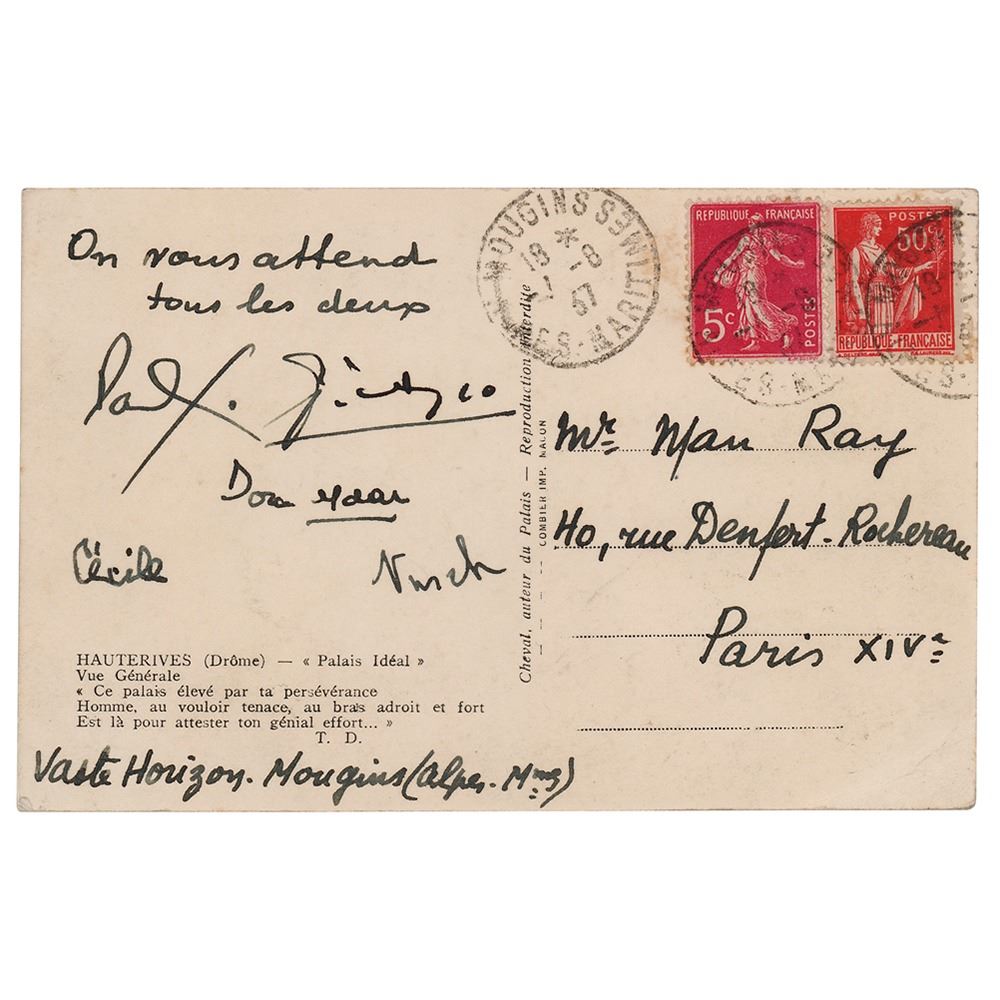 On vous attend
tous les deux
Paul E. Picasso
Dora Maar
Cécile Nusch
HAUTERIVES (Drôme) — « Palais Idéal »
Vue Générale
« Ce palais élevé par ta persévérance
Homme, au vouloir tenace, au bras adroit et fort
Est là pour attester ton génial effort... »
T. D.
Vaste Horizon. Mougins (Alpes. Mmes)
Cheval, auteur du Palais — Reproduction Interdite
COMBIER IMP. MACON
MOUGINS
18 * -8
37
ALPES-MARITIMES
REPUBLIQUE FRANÇAISE
5c
POSTES
POSTES
50c
REPUBLIQUE-FRANÇAISE
Mr. Man Ray
40, rue Denfert-Rochereau
Paris XIVe